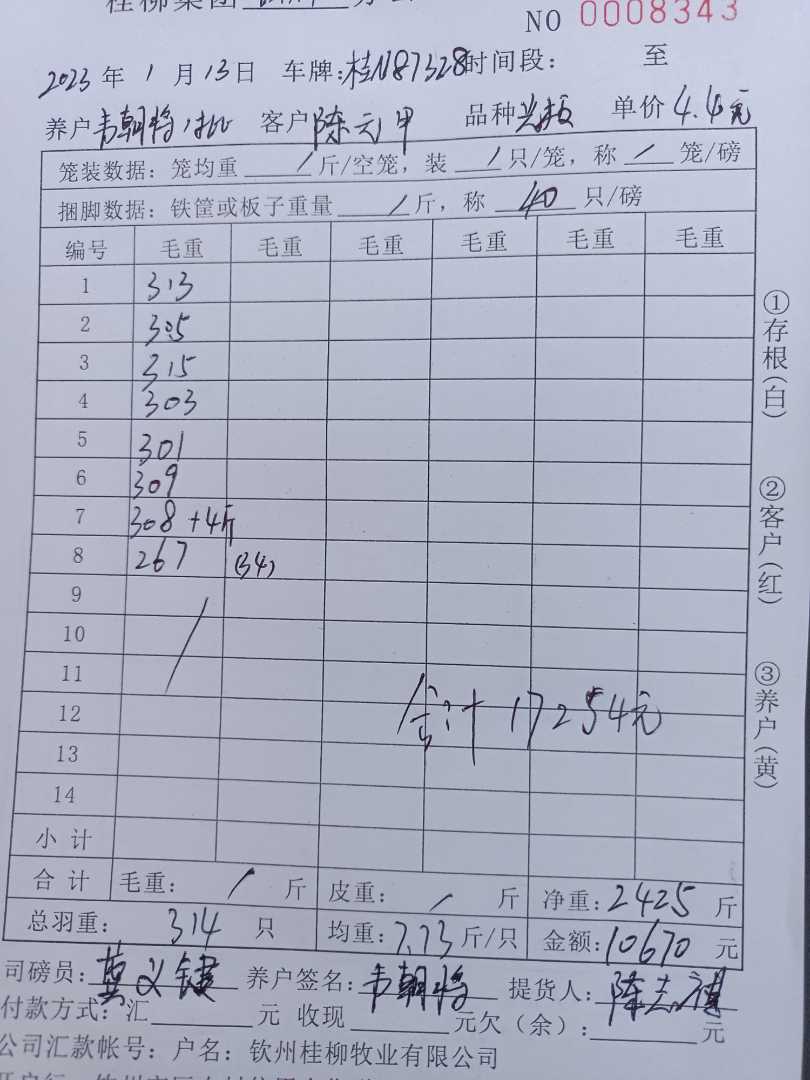 桂柳集团
NO 0008343
2023 年 1 月 13 日 车牌:桂N87328 时间段: 至
养户 韦朝将 客户 陈云甲 品种 单价 4.4元
笼装数据: 笼均重 / 斤/空笼, 装 / 只/笼, 称 / 笼/磅
捆脚数据: 铁筐或板子重量 / 斤, 称 40 只/磅
编号 毛重 毛重 毛重 毛重 毛重 毛重
1 313
2 305
3 315
4 303
5 301
6 309
7 308 +4斤
8 267 (34)
9
10
11
合计 17254元
12
13
14
小 计
合 计 毛重: / 斤 皮重: / 斤 净重: 2425 斤
总羽重: 314 只 均重: 7.73 斤/只 金额: 10670 元
司磅员: 莫义键 养户签名: 韦朝将 提货人: 陈志祺
付款方式: 汇 元 收现 元欠(余): 元
公司汇款帐号: 户名: 钦州桂柳牧业有限公司
①存根(白)
②客户(红)
③养户(黄)